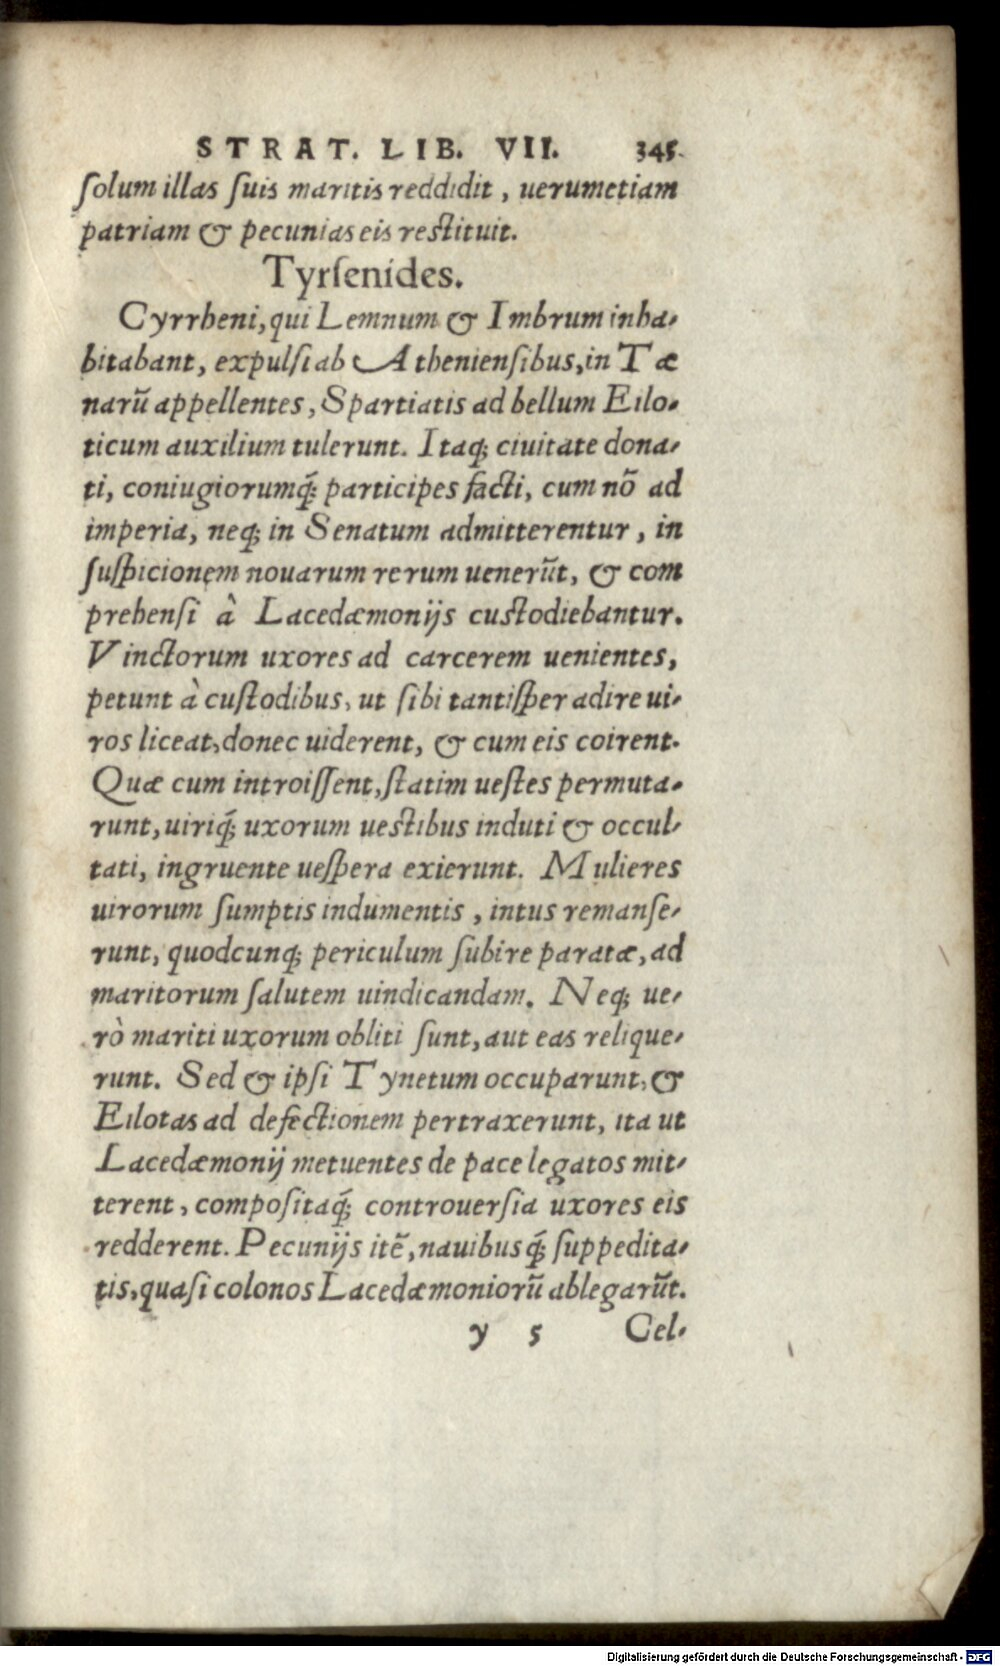 STRAT. LIB. VII. 345.
ſolum illas ſuis maritis reddidit, uerumetiam
patriam & pecunias eis reſtituit.
Tyrſenides.
Cyrrheni, qui Lemnum & Imbrum inha-
bitabant, expulſi ab Athenienſibus, in Tæ
narũ appellentes, Spartiatis ad bellum Eilo-
ticum auxilium tulerunt. Itaq; ciuitate dona-
ti, coniugiorumq́; participes facti, cum nõ ad
imperia, neq; in Senatum admitterentur, in
ſuſpicionem nouarum rerum uenerũt, & com
prehenſi à Lacedæmonijs cuſtodiebantur.
Vinctorum uxores ad carcerem uenientes,
petunt à cuſtodibus, ut ſibi tantiſper adire ui-
ros liceat, donec uiderent, & cum eis coirent.
Quæ cum introiſſent, ſtatim ueſtes permuta-
runt, uiriq́; uxorum ueſtibus induti & occul-
tati, ingruente ueſpera exierunt. Mulieres
uirorum ſumptis indumentis, intus remanſe-
runt, quodcunq; periculum ſubire paratæ, ad
maritorum ſalutem uindicandam. Neq; ue-
rò mariti uxorum obliti ſunt, aut eas relique-
runt. Sed & ipſi Tynetum occuparunt, &
Eilotas ad defectionem pertraxerunt, ita ut
Lacedæmonij metuentes de pace legatos mit-
terent, compoſitaq́; controuerſia uxores eis
redderent. Pecunijs itẽ, nauibusq́; ſuppedita-
tis, quaſi colonos Lacedæmoniorũ ablegarũt.
y 5 Cel-
Digitalisierung gefördert durch die Deutsche Forschungsgemeinschaft - DFG